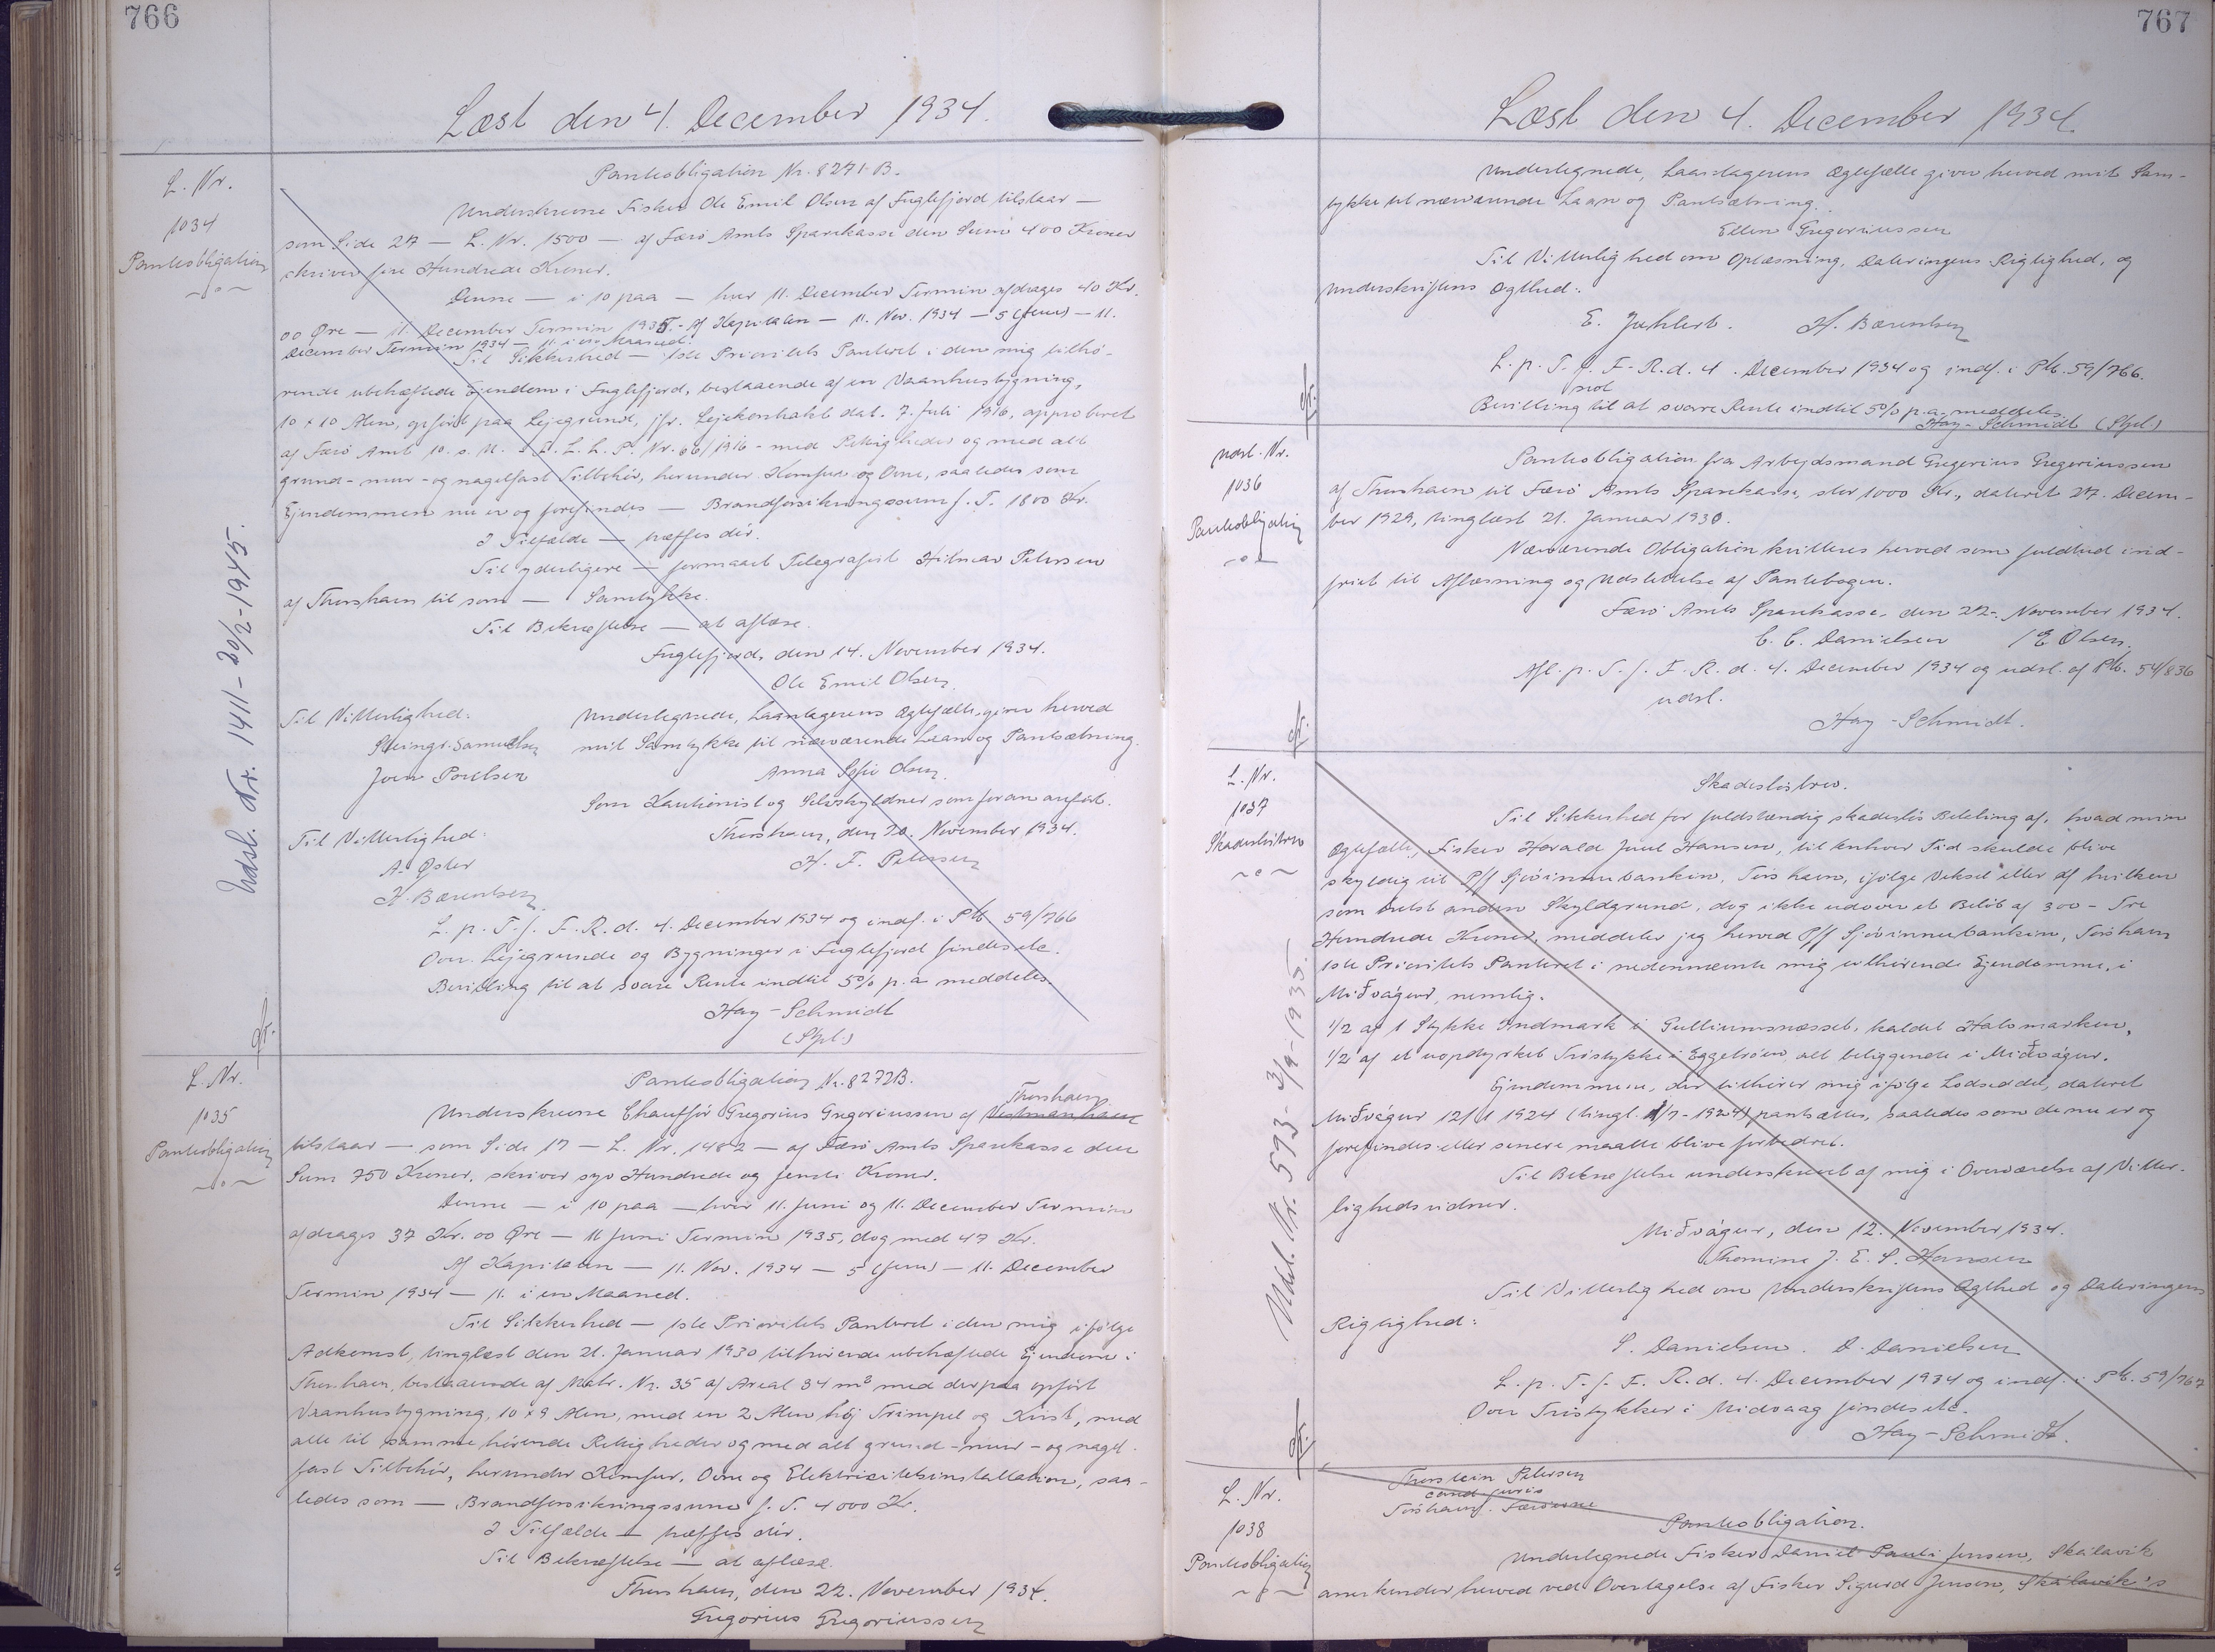 766
Læst den 4. December 1934.
L. Nr.
1034
Panteobligation
Panteobligation Nr. 8271 B.
Underskrevne Fisker Ole Emil Olsen af Fuglefjord tilstaar —
som Side 27 — L. Nr. 1500 — af Færø Amts Sparekasse den Sum 400 Kroner
skriver fire Hundrede Kroner.
Denne — i 10 paa — hver 11. December Termin afdrages 40 Kr.
00 Øre — 11. December Termin 1935. - Af Kapitalen — 11. Nov. 1934 — 5 (fem) — 11.
December Termin 1934 — 11. i en Maaned.
Til Sikkerhed — 1ste Prioritets Panteret i den mig tilhø-
rende ubehæftede Ejendom i Fuglefjord, bestaaende af en Vaanhusbygning,
10 x 10 Alen, opført paa Lejegrund, jfr. Lejekontrakt dat. 7. Juli 1916, approberet
af Færø Amt 10. s. M. I. L. L. P. Nr. 66/1916 - med Rettigheder og med alt
grund- mur- og nagelfast Tilbehør, herunder Komfur og Ovne, saaledes som
Ejendommen nu er og forefindes — Brandforsikringssum f. T. 1800 Kr.
I Tilfælde — træffes dér.
Til yderligere — formaaet Telegrafist Hilmar Petersen
af Thorshavn til som — Samtykke.
Til Bekræftelse — at aflæse.
Fuglefjord, den 14. November 1934.
Ole Emil Olsen.
Til Vitterlighed:
Samuelsen
Joen Poulsen
Undertegnede, Laantagerens Ægtefælle, giver herved
mit Samtykke til nærværende Laan og Pantsætning.
Anna Sofie Olsen.
Som Kautionist og Selvskyldner som foran anført.
Thorshavn, den 20. November 1934.
H. F. Petersen
Til Vitterlighed:
A. Øster
H. Bærentsen
L. p. T. f. F. R. d. 4. December 1934 og indf. i Ptb. 59/766
Ovn. Lejegrunde og Bygninger i Fuglefjord findes etc.
Bevilling til at svare Rente indtil 5% p. a. meddeles.
Hay-Schmidt
(Stpl.)
Udsl. Nr. 1411 - 20/2-1945.
L. Nr.
1035
Panteobligation
Panteobligation Nr. 8272 B.
Thorshavn
Underskrevne Chauffør Gregorius Gregoriussen af Vestmanhavn
tilstaar — som Side 17 — L. Nr. 1482 — af Færø Amts Sparekasse den
Sum 750 Kroner, skriver syv Hundrede og femti Kroner.
Denne — i 10 paa — hver 11. Juni og 11. December Termin
afdrages 37 Kr. 00 Øre — 11 Juni Termin 1935, dog med 47 Kr.
Af Kapitalen — 11. Nov. 1934 — 5 (fem) — 11. December
Termin 1934 — 11. i en Maaned.
Til Sikkerhed — 1ste Prioritets Panteret i den mig ifølge
Adkomst, tinglæst den 21. Januar 1930 tilhørende ubehæftede Ejendom i
Thorshavn, bestaaende af Matr. Nr. 35 af Areal 34 m² med derpaa opført
Vaanhusbygning, 10 x 9 Alen, med en 2 Alen høj Trimpel og Kvist, med
alle til samme hørende Rettigheder og med alt grund- mur- og nagel-
fast Tilbehør, herunder Komfur, Ovne og Elektricitetsinstallation, saa-
ledes som — Brandforsikringssum f. T. 4000 Kr.
I Tilfælde — træffes dér.
Til Bekræftelse — at aflæse.
Thorshavn, den 22. November 1934.
Gregorius Gregoriussen
767
Læst den 4. December 1934.
Undertegnede, Laantagerens Ægtefælle giver herved mit Sam-
tykke til nærværende Laan og Pantsætning.
Ellen Gregoriussen
Til Vitterlighed om Oplæsning, Dateringens Rigtighed, og
Underskriftens Ægthed:
E. H. Bærentsen
L. p. T. f. F. R. d. 4. December 1934 og indf. i Ptb. 59/766.
Bevilling til at svare Rente indtil 5% p. a. meddeles.
Hay-Schmidt (Stpl.)
Udsl. Nr.
1036
Panteobligation
Panteobligation fra Arbejdsmand Gregorius Gregoriussen
af Thorshavn til Færø Amts Sparekasse, stor 1000 Kr., dateret 27. Decem-
ber 1929, tinglæst 21. Januar 1930.
Nærværende Obligation kvitteres herved som fuldtud ind-
friet til Aflæsning og Udslettelse af Pantebogen.
Færø Amts Sparekasse, den 22. November 1934.
C. C. Danielsen / E Olsen.
Afl. p. T. f. F. R. d. 4. December 1934 og udsl. af Ptb. 54/836
udsl.
Hay-Schmidt.
L. Nr.
1037
Skadesløsbrev
Skadesløsbrev.
Til Sikkerhed for fuldstændig skadesløs Betaling af, hvad min
Ægtefælle, Fisker Harald Juul Hansen, til enhver Tid skulde blive
skyldig til P/f Sjóvinnubankin, Tórshavn, ifølge Veksel eller af hvilken
som helst anden Skyldgrund, dog ikke udover et Beløb af 300 - Tre
Hundrede Kroner, meddeler jeg herved P/f Sjóvinnubankin, Tórshavn
1ste Prioritets Panteret i nedennævnte mig tilhørende Ejendomme, i
Miðvágur, nemlig.
1/2 af 1 Stykke Indmark i Gulliumsnæsset, kaldet Halsmarken,
1/2 af et uopdyrket Trøstykke i Eggetrøen, alt beliggende i Miðvágur.
Ejendommene, der tilhører mig ifølge Lodseddel, dateret
Miðvágur 12/1 1924 (tingl. 1/7-1924) pantsættes, saaledes som de nu er og
forefindes eller senere maatte blive forbedret.
Til Bekræftelse underskrevet af mig i Overværelse af Vitter-
lighedsvidner.
Miðvágur, den 12. November 1934.
Thomine J. E. S. Hansen
Til Vitterlighed om Underskriftens Ægthed og Dateringens
Rigtighed:
S. Danielsen. D. Danielsen
L. p. T. f. F. R. d. 4. December 1934 og indf. i Ptb. 59/767
Over Trøstykker i Midvaag findes etc.
Hay-Schmidt.
Udsl. Nr. 593 - 3/9-1935.
L. Nr.
1038
Panteobligation
Thorstein Petersen
cand. juris
Tórshavn. Færøerne
Panteobligation.
Undertegnede Fisker Daniel Pauli Jensen, Skálavik
anerkender herved ved Overtagelse af Fisker Sigurd Jensen, Skálavik's